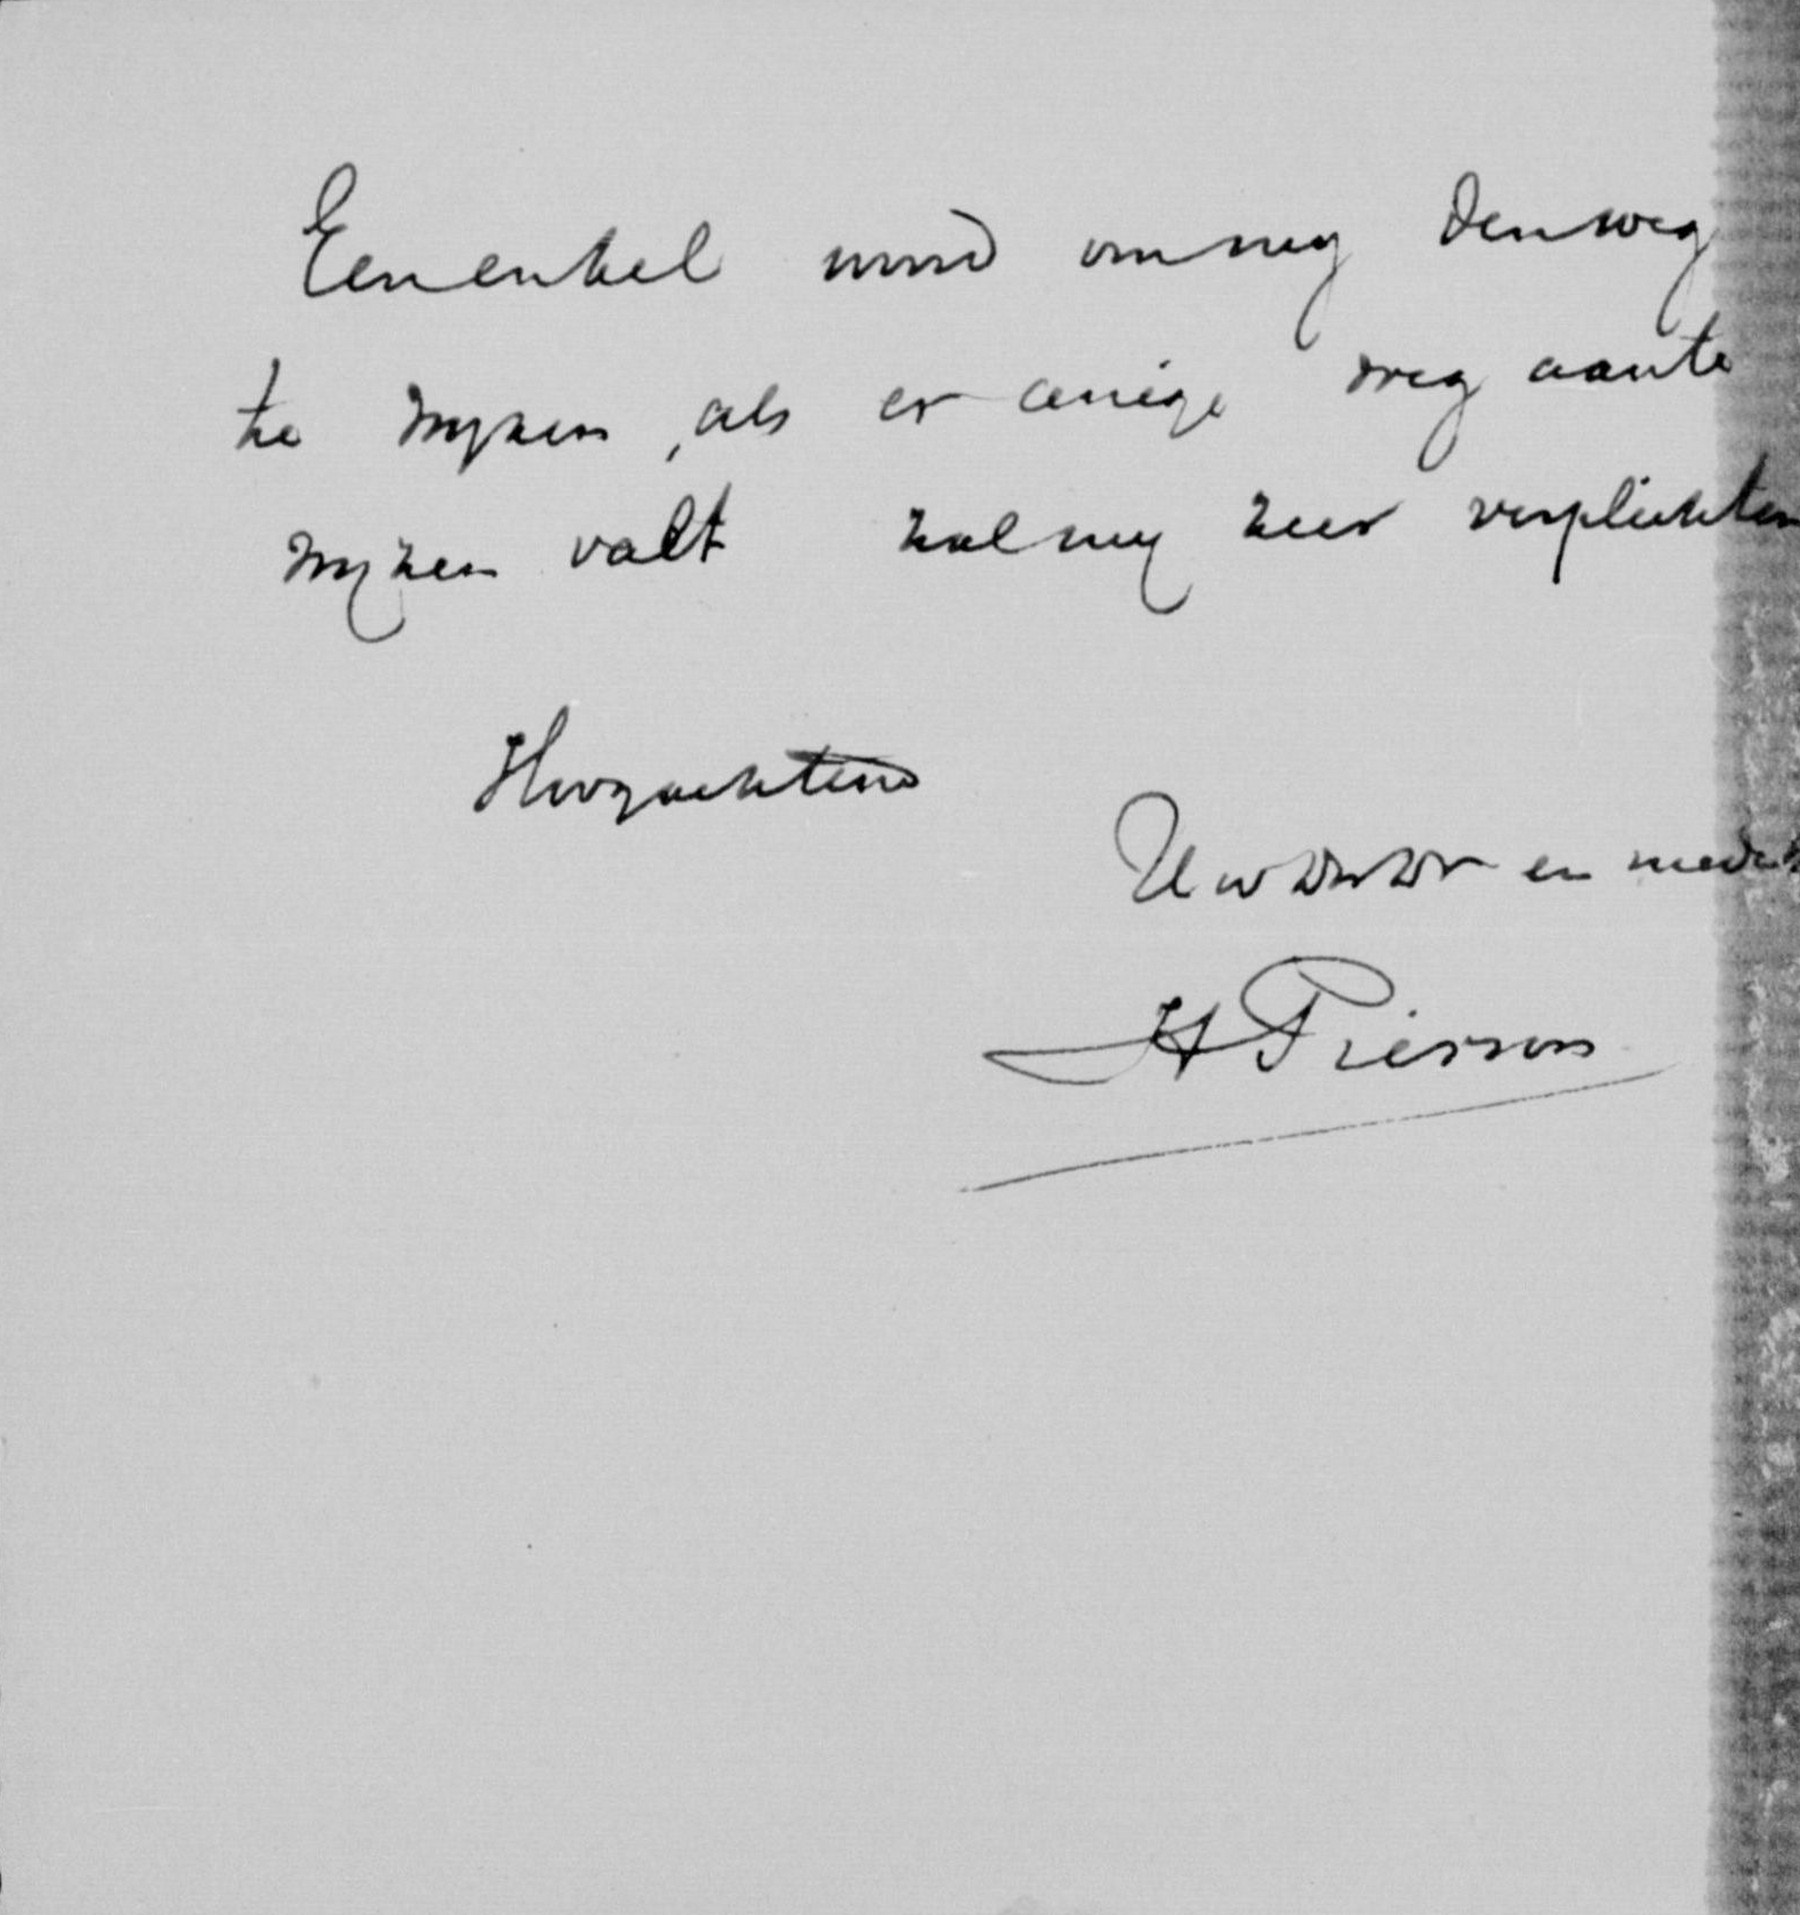 Een enkel woord om mij den weg
te wijzen, als er eenige weg aan te
wijzen valt zal mij zeer verplichten
Hoogachtend
Uw en
H Pierson